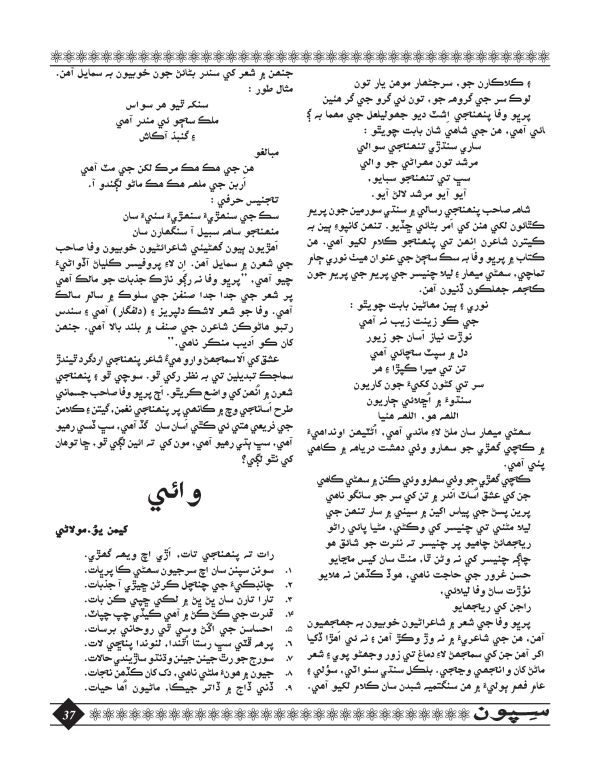 ۽ ڪلاڪارن جو، سرجڻهار موهن يار تون
لوڪ سر جي گروهه جو، تون ئي گرو جي گر هئين
پرڀو وفا پنهنجي اِشٽ ديو جهوليلعل جي مهما به ڳ
ائي آهي، هن جي شاهي شان بابت چويٿو :
ساري سنڌڙي تنهنجي سوالي
مرشد تون مهراڻي جو والي
سڀ تي تنهنجو سبايو،
آيو آيو مرشد لالڻ آيو.
شاهه صاحب پنهنجي رسالي ۾ سنڌي سورمين جون پريم
ڪٿائون لکي هنن کي اَمر بڻائي ڇڏيو. تنهن کانپوءِ ٻين به
ڪيترن شاعرن اِنهن تي پنهنجو ڪلام لکيو آهي. هن
ڪتاب ۾ پرڀو وفا به سڪ ساڄڻ جي عنوان هيٺ نوري ڄام
تماچي، سهڻي ميهار ۽ ليلا چنيسر جي پريم جي پريم جون
ڪاڄهه جهلڪون ڏنيون آهن.
نوري ۽ ٻين مهاڻين بابت چويٿو :
جي ڪو زينت زيب نه آهي
نوڙت نياز اَسان جو زيور
دل ۾ سڀٽ سچائي آهي
تن تي ميرا ڪپڙا ۽ مر
سر تي کڻون ککيءَ جون کاريون
سنڌوءَ ۾ اُڇلائي ڄاريون
الله هو، الله هئيا
سهڻي ميهار سان ملڻ لاءِ ماندي آهي. اَڻتيهن اونداهيءَ
۾ ڪاچي گهڙي جو سهارو وٺي دهشت درياهه ۾ ڪاهي
پئي آهي.
ڪاچي گهڙي جو وٺي سهارو وئي ڪنن ۾ سهڻي ڪاهي
جن کي عشق اُساٽ اَندر ۾ تن کي سر جو سانگو ناهي
پرين پسڻ جي پياس اکين ۾ سيني ۾ سار تنهن جي
ليلا مڻئي تي چنيسر کي وڪڻي، مڻيا پائي راڻو
ريجهائڻ چاهيو پر چنيسر ته نئرت جو شائق هو
چاڄهه چنيسر کي نه وڻن ٿا، منٿ سان کيس مڃايو
حسن غرور جي حاجت ناهي، موڏ ڪڏهن نه ملايو
نوڙت سان وفا ليلائي،
راڄن کي ريجهايو
پرڀو وفا جي شعر ۾ شاعراڻيون خوبيون به جهجهيون
آهن، هن جي شاعريءَ ۾ نه وڙ وڪڙ آهن ۽ نه ئي اَهڙا ڏکيا
اکر آهن جن کي سمجهڻ لاءِ دماغ تي زور وجهڻو پوي ۽ شعر
ماڻڻ کان وانجهي وڃجي. بلڪل سنئي سنواٽي، سولي ۽
عام فهم ٻوليءَ ۾ من سنگتميه شبدن سان ڪلام لکيو آهي.
جنهن ۾ شعر کي سندر بڻائڻ جون خوبيون به سمايل آهن.
مثال طور :
سنکہ ٿيو هر سواس
ملڪ سڄو ئي مندر آهي
۽ گنبذ آڪاش
مبالغو
هن جي هڪ هڪ مرڪ لکن جي مٽ آهي
اَربن جي ملهه هڪ هڪ ماڻو لڳندو آ.
تاجنيس حرفي :
سڪ جي سنهڙيءَ سنهڙيءَ سئيءَ سان
منهنجو ساهه سبيل آ سنگهارن سان
اَهڙيون ٻيون گهڻيئي شاعراڻيون خوبيون وفا صاحب
جي شعرن ۾ سمايل آهن. اِن لاءِ پروفيسر ڪلياڻ آڏواڻيءَ
چيو آهي، "پرڀو وفا نه رڳو نازڪ جذبات جو مالڪ آهي
پر شعر جي جدا جدا صنفن جي سلوڪ ۾ سالم سالڪ
آهي. وفا جو شعر لاشڪ دلپريز ۽ (دلفگار) آهي ۽ سندس
رتبو هاڻوڪن شاعرن جي صنف ۾ بلند بالا آهي. جنهن
کان ڪو اَديب منڪر ناهي."
عشق کي اَلا سمجهڻ وارو هيءُ شاعر پنهنجي اردگرد ٿيندڙ
سماجڪ تبديلين تي به نظر رکي ٿو. سوچي ٿو ۽ پنهنجي
شعرن ۾ اُنهن کي واضح ڪريٿو. اَڄ پرڀو وفا صاحب جسماني
طرح اَسانجي وچ ۾ ڪانهي پر پنهنجي نغمن، گيتن ۽ ڪلامن
جي ذريعي هتي ئي ڪٿي اَسان سان گڏ آهي، سڀ ڏسي رهيو
آهي، سڀ ٻڌي رهيو آهي، مون کي ته ائين لڳي ٿو، ڇا توهان
کي نٿو لڳي؟
وائي
کيمن يو. مولاڻي
رات ته پنهنجي تات، اَڙي اچ ويهه گهڙي.
۱. سونن سپنن سان اچ سرجيون سهڻي ڪا پرڀات.
۲. چانڊڪيءَ جي چنچل ڪرڻن ڇيڙي آ جذبات.
۳. تارا تارن سان ڀڻ ڀڻ ۾ لڪي ڇپي ڪن بات.
۴. قدرت جي ڪڻ ڪڻ ۾ آهي ڪيڏي چپ چپات.
۵. احساسن جي اڱڻ وسي ٿي روحاني برسات.
۶. پرهه ڦٽي سڀ رستا اُٿندا، لنوندا پنڇي لات.
۷. سورج جو رٿ جيئن جيئن وڌندو ساڙيندي حالات.
۸. جيون ۾ موت ملڻي ناهي، دک کان ڪڏهن نجات.
۹. ڏئي ڏاج ۾ ڏاتر جيڪا، ماڻيون اُها حيات.
37
سپون